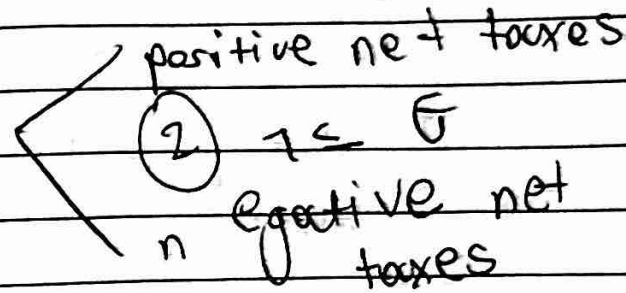 positive net taxes
② 1 ≤ G
negative net
taxes